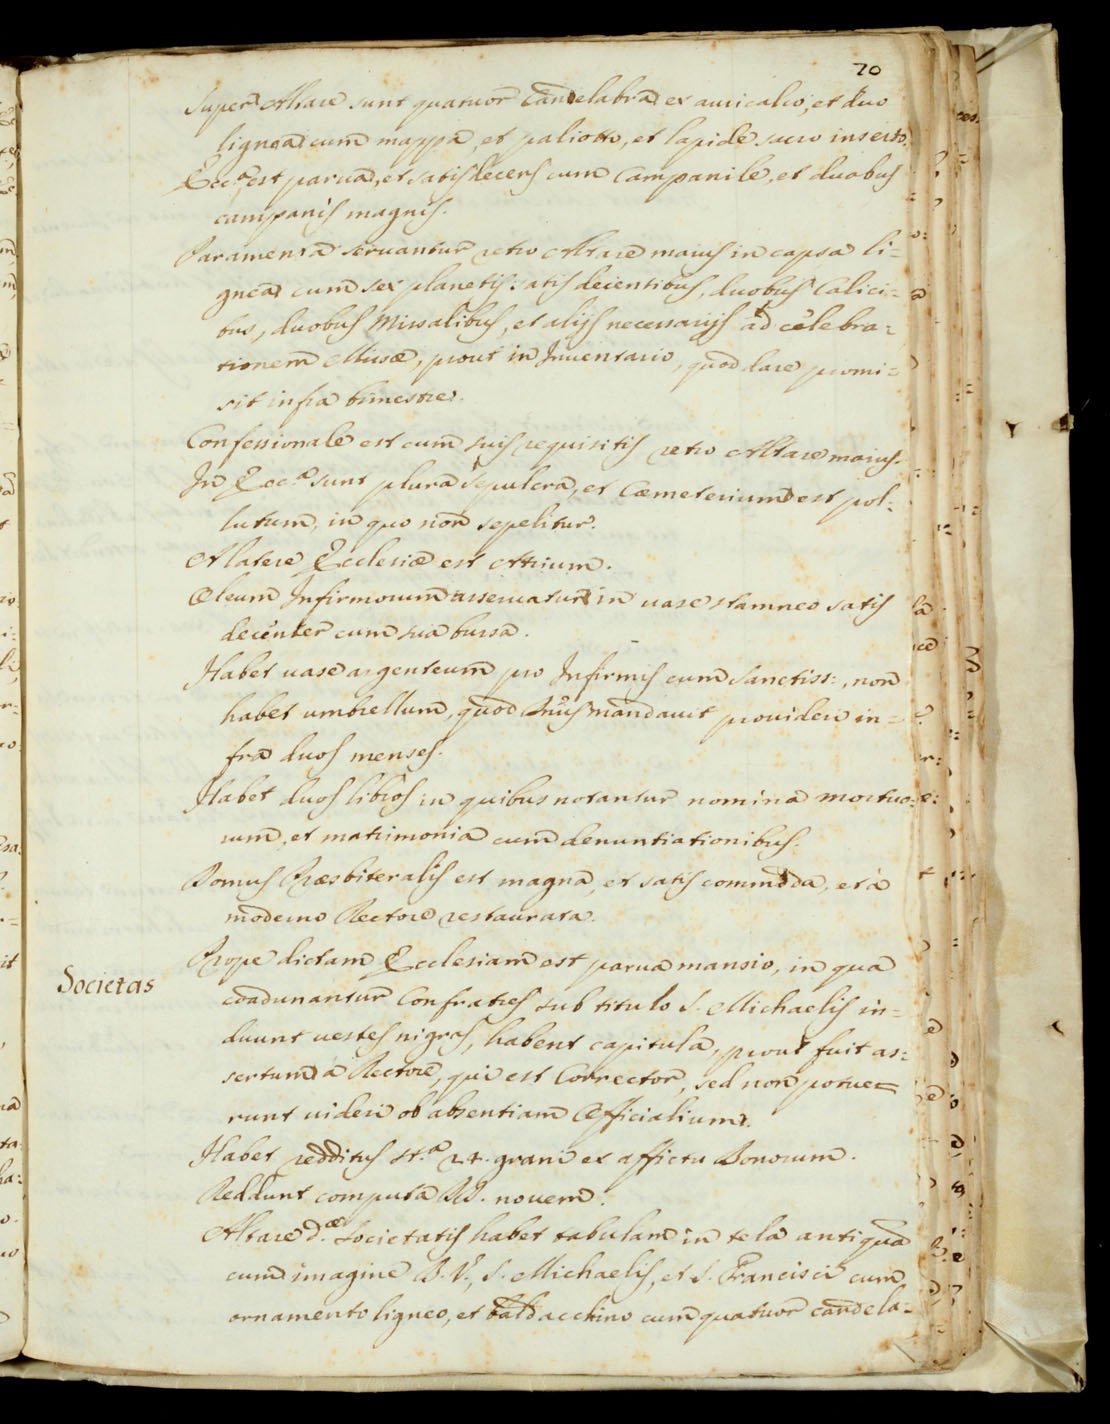 70
Super Altare sunt quatuor Candelabra ex auricalco, et duo
lignea cum mappa, et paliotto, et lapide sacro inserto.
Eccl.ª est parua, et satis decens cum Campanile, et duobus
campanis magnis.
Paramenta seruantur retro Altare maius in capsa li=
gnea cum sex planetis satis decentibus, duobus Calici=
bus, duobus Missalibus, et alijs necessarijs ad celebra=
tionem Missæ, prout in Inuentario, quod dare promi=
sit infra bimestre.
Confessionale est cum suis requisitis retro Altare maius.
In Ecc.ª sunt plura sepulcra, et Cœmeterium est pol=
lutum, in quo non sepelitur.
A latere Ecclesiæ est Atrium.
Oleum Infirmorum asseruatur in uase stamneo satis
decenter cum sua bursa.
Habet uase argenteum pro Infirmis cum Sanctiss:, non
habet umbrellum, quod Ill̃us mandauit prouideri in=
fra duos menses.
Habet duos libros in quibus notantur nomina mortuo=
rum, et matrimonia cum denuntiationibus.
Domus Præsbiteralis est magna, et satis commoda, et à
moderno Rectore restaurata.
Societas
Prope dictam Ecclesiam est parua mansio, in qua
coadunantur Confratres sub titulo S. Michaelis in=
duunt uestes nigras, habent capitula, prout fuit as=
sertum à Rectore, qui est Corrector, sed non potue=
runt uideri ob absentiam Officialium.
Habet redditus st.ª 24. grani ex affictu Bonorum.
Reddunt computa DD. nouem.
Altare d.æ Societatis habet tabulam in tela antiqua
cum imagine B. V., S. Michaelis, et S. Francisci cum
ornamento ligneo, et baldacchino cum quatuor candela=